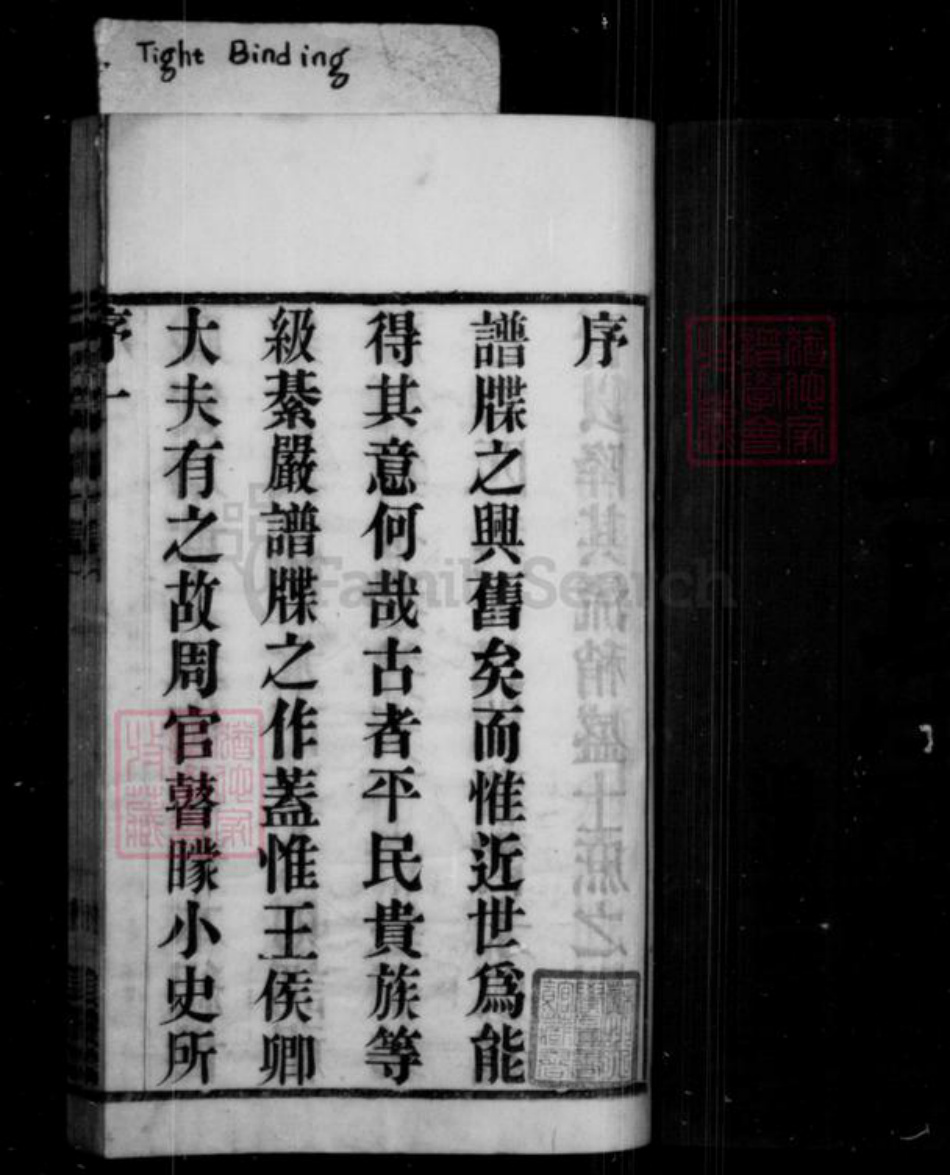 Tight Binding
序
譜牒之興舊矣而惟近世爲能
得其意何哉古者平民貴族等
級綦嚴譜牒之作蓋惟王侯卿
大夫有之故周官瞽矇小史所
序 一
FamilySearch